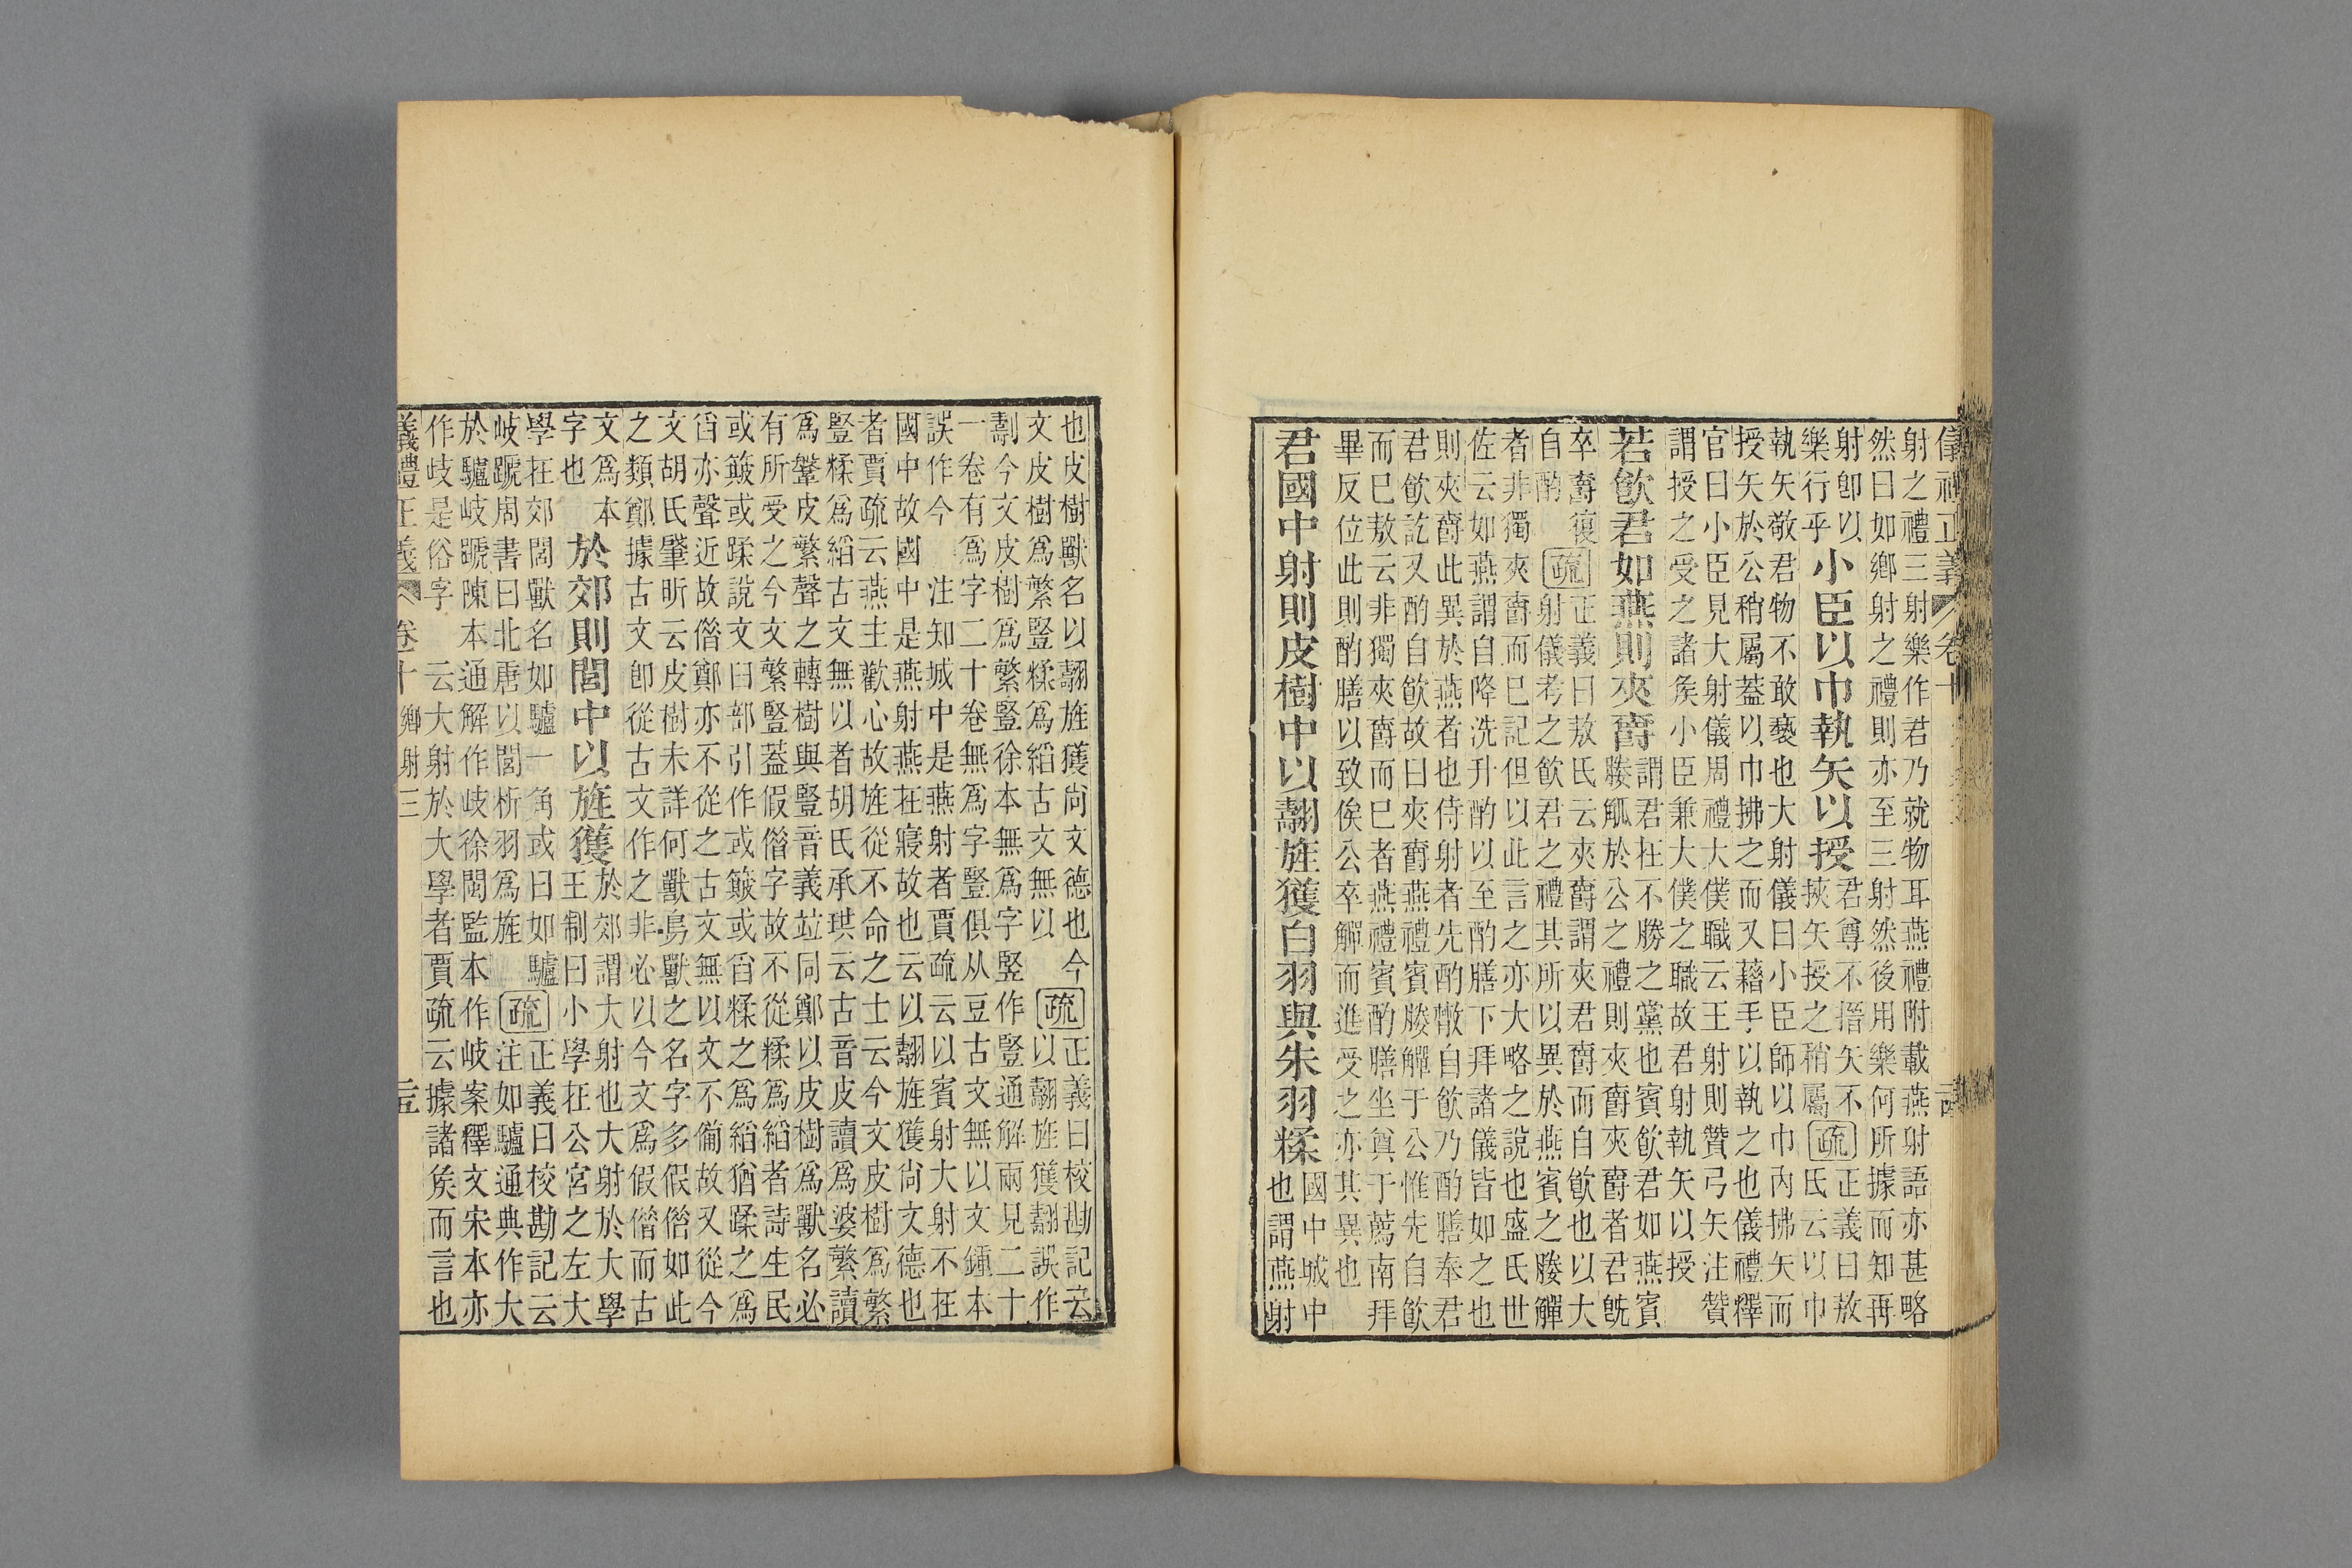 儀禮正義 卷十
射之禮三射樂作君乃就物耳燕禮附載燕射語亦甚略
然曰如鄉射之禮則亦至三射然後用樂何所據而知再
射卽以
樂行乎
小臣以巾執矢以授
君尊不搢矢不
挾矢授之稍屬
疏
正義曰敖
氏云以巾
執矢敬君物不敢褻也大射儀曰小臣師以巾內拂矢而
授矢於公稍屬葢以巾拂之而又藉手以執之也儀禮釋
官曰小臣見大射儀周禮大僕職云王射則贊弓矢注贊
謂授之受之諸矦小臣兼大僕之職故君射執矢以授
若飮君如燕則夾爵
謂君在不勝之黨也賓飮君如燕賓
媵觚於公之禮則夾爵夾爵者君旣
卒爵復
自酌
疏
正義曰敖氏云夾爵謂夾君爵而自飮也以大
射儀考之飮君之禮其所以異於燕賓之媵觶
者非獨夾爵而已記但以此言之亦大略之說也盛氏世
佐云如燕謂自降洗升酌以至酌膳下拜諸儀皆如之也
則夾爵此異於燕者也侍射者先酌散自飮乃酌膳奉君
君飮訖又酌自飮故曰夾爵燕禮賓媵觶于公惟先自飮
而已敖云非獨夾爵而已者燕禮賓酌膳坐奠于薦南拜
畢反位此則酌膳以致俟公卒觶而進受之亦其異也
君國中射則皮樹中以翿旌獲白羽與朱羽糅
國中城中
也謂燕射
也皮樹獸名以翿旌獲尙文德也今
文皮樹爲繁豎糅爲縚古文無以
疏
正義曰校勘記云
以翿旌獲翿誤作
劃今文皮樹爲繁豎徐本無爲字豎作豎通解兩見二十
一卷有爲字二十卷無爲字豎俱从豆古文無以文鍾本
誤作今
注知城中是燕射者賈疏云以賓射大射不在
國中故國中是燕射燕在寢故也云以翿旌獲尙文德也
者賈疏云燕主歡心故旌從不命之士云今文皮樹爲繁
豎糅爲縚古文無以者胡氏承珙云古音皮讀爲婆繁讀
爲鞶皮繁聲之轉樹與豎音義竝同鄭以皮樹爲獸名必
有所受之今文繁豎葢假借字故不從糅爲縚者詩生民
或簸或蹂說文臼部引作或簸或舀糅之爲縚猶蹂之爲
舀亦聲近故借鄭亦不從之古文無以文不備故又從今
文胡氏肇昕云皮樹未詳何獸鳥獸之名字多假借如此
之類鄭據古文卽從古文作之非必以今文爲假借而古
文爲本
字也
於郊則閭中以旌獲
於郊謂大射也大射於大學
王制曰小學在公宮之左大
學在郊閭獸名如驢一角或曰如驢
岐蹏周書曰北唐以閭析羽爲旌
疏
正義曰校勘記云
注如驢通典作大
於驢岐蹏陳本通解作歧徐閩監本作岐案釋文宋本亦
作歧是俗字
云大射於大學者賈疏云據諸矦而言也
儀禮正義 卷十 鄉射三